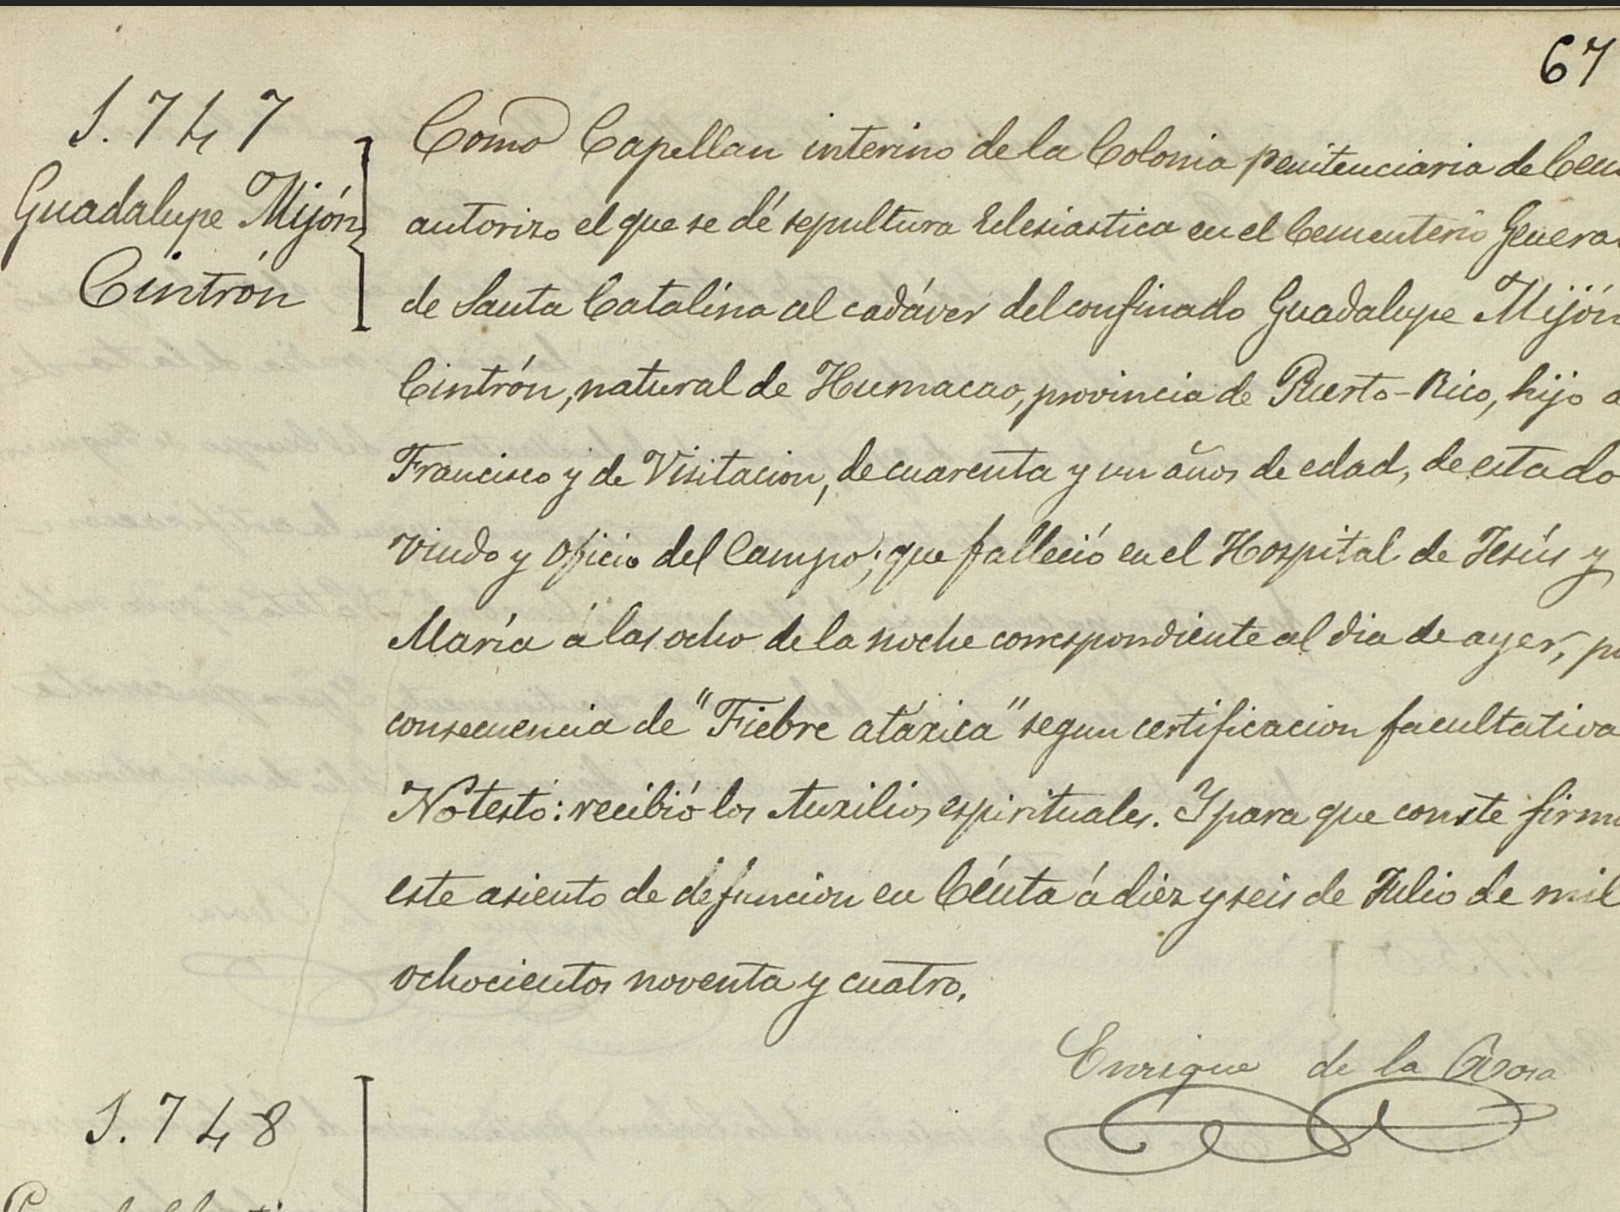 67
1.747
Guadalupe Mijón
Cintrón
Como Capellan interino de la Colonia penitenciaria de Ceu
autorizo el que se dé sepultura Eclesiastica en el Cementerio Genera
de Santa Catalina al cadáver del confinado Guadalupe Mijón
Cintrón, natural de Humacao, provincia de Puerto-Rico, hijo d
Francisco y de Visitacion, de cuarenta y un años de edad, de estado
viudo y oficio del Campo; que falleció en el Hospital de Jesús y
María á las ocho de la noche correspondiente al dia de ayer, po
consecuencia de "Fiebre atáxica" segun certificacion facultativa
No testó: recibió los Auxilios espirituales. Y para que conste firmo
este asiento de defuncion en Céuta á diez y seis de Julio de mil
ochocientos noventa y cuatro.
Enrique de la Rosa
1.748